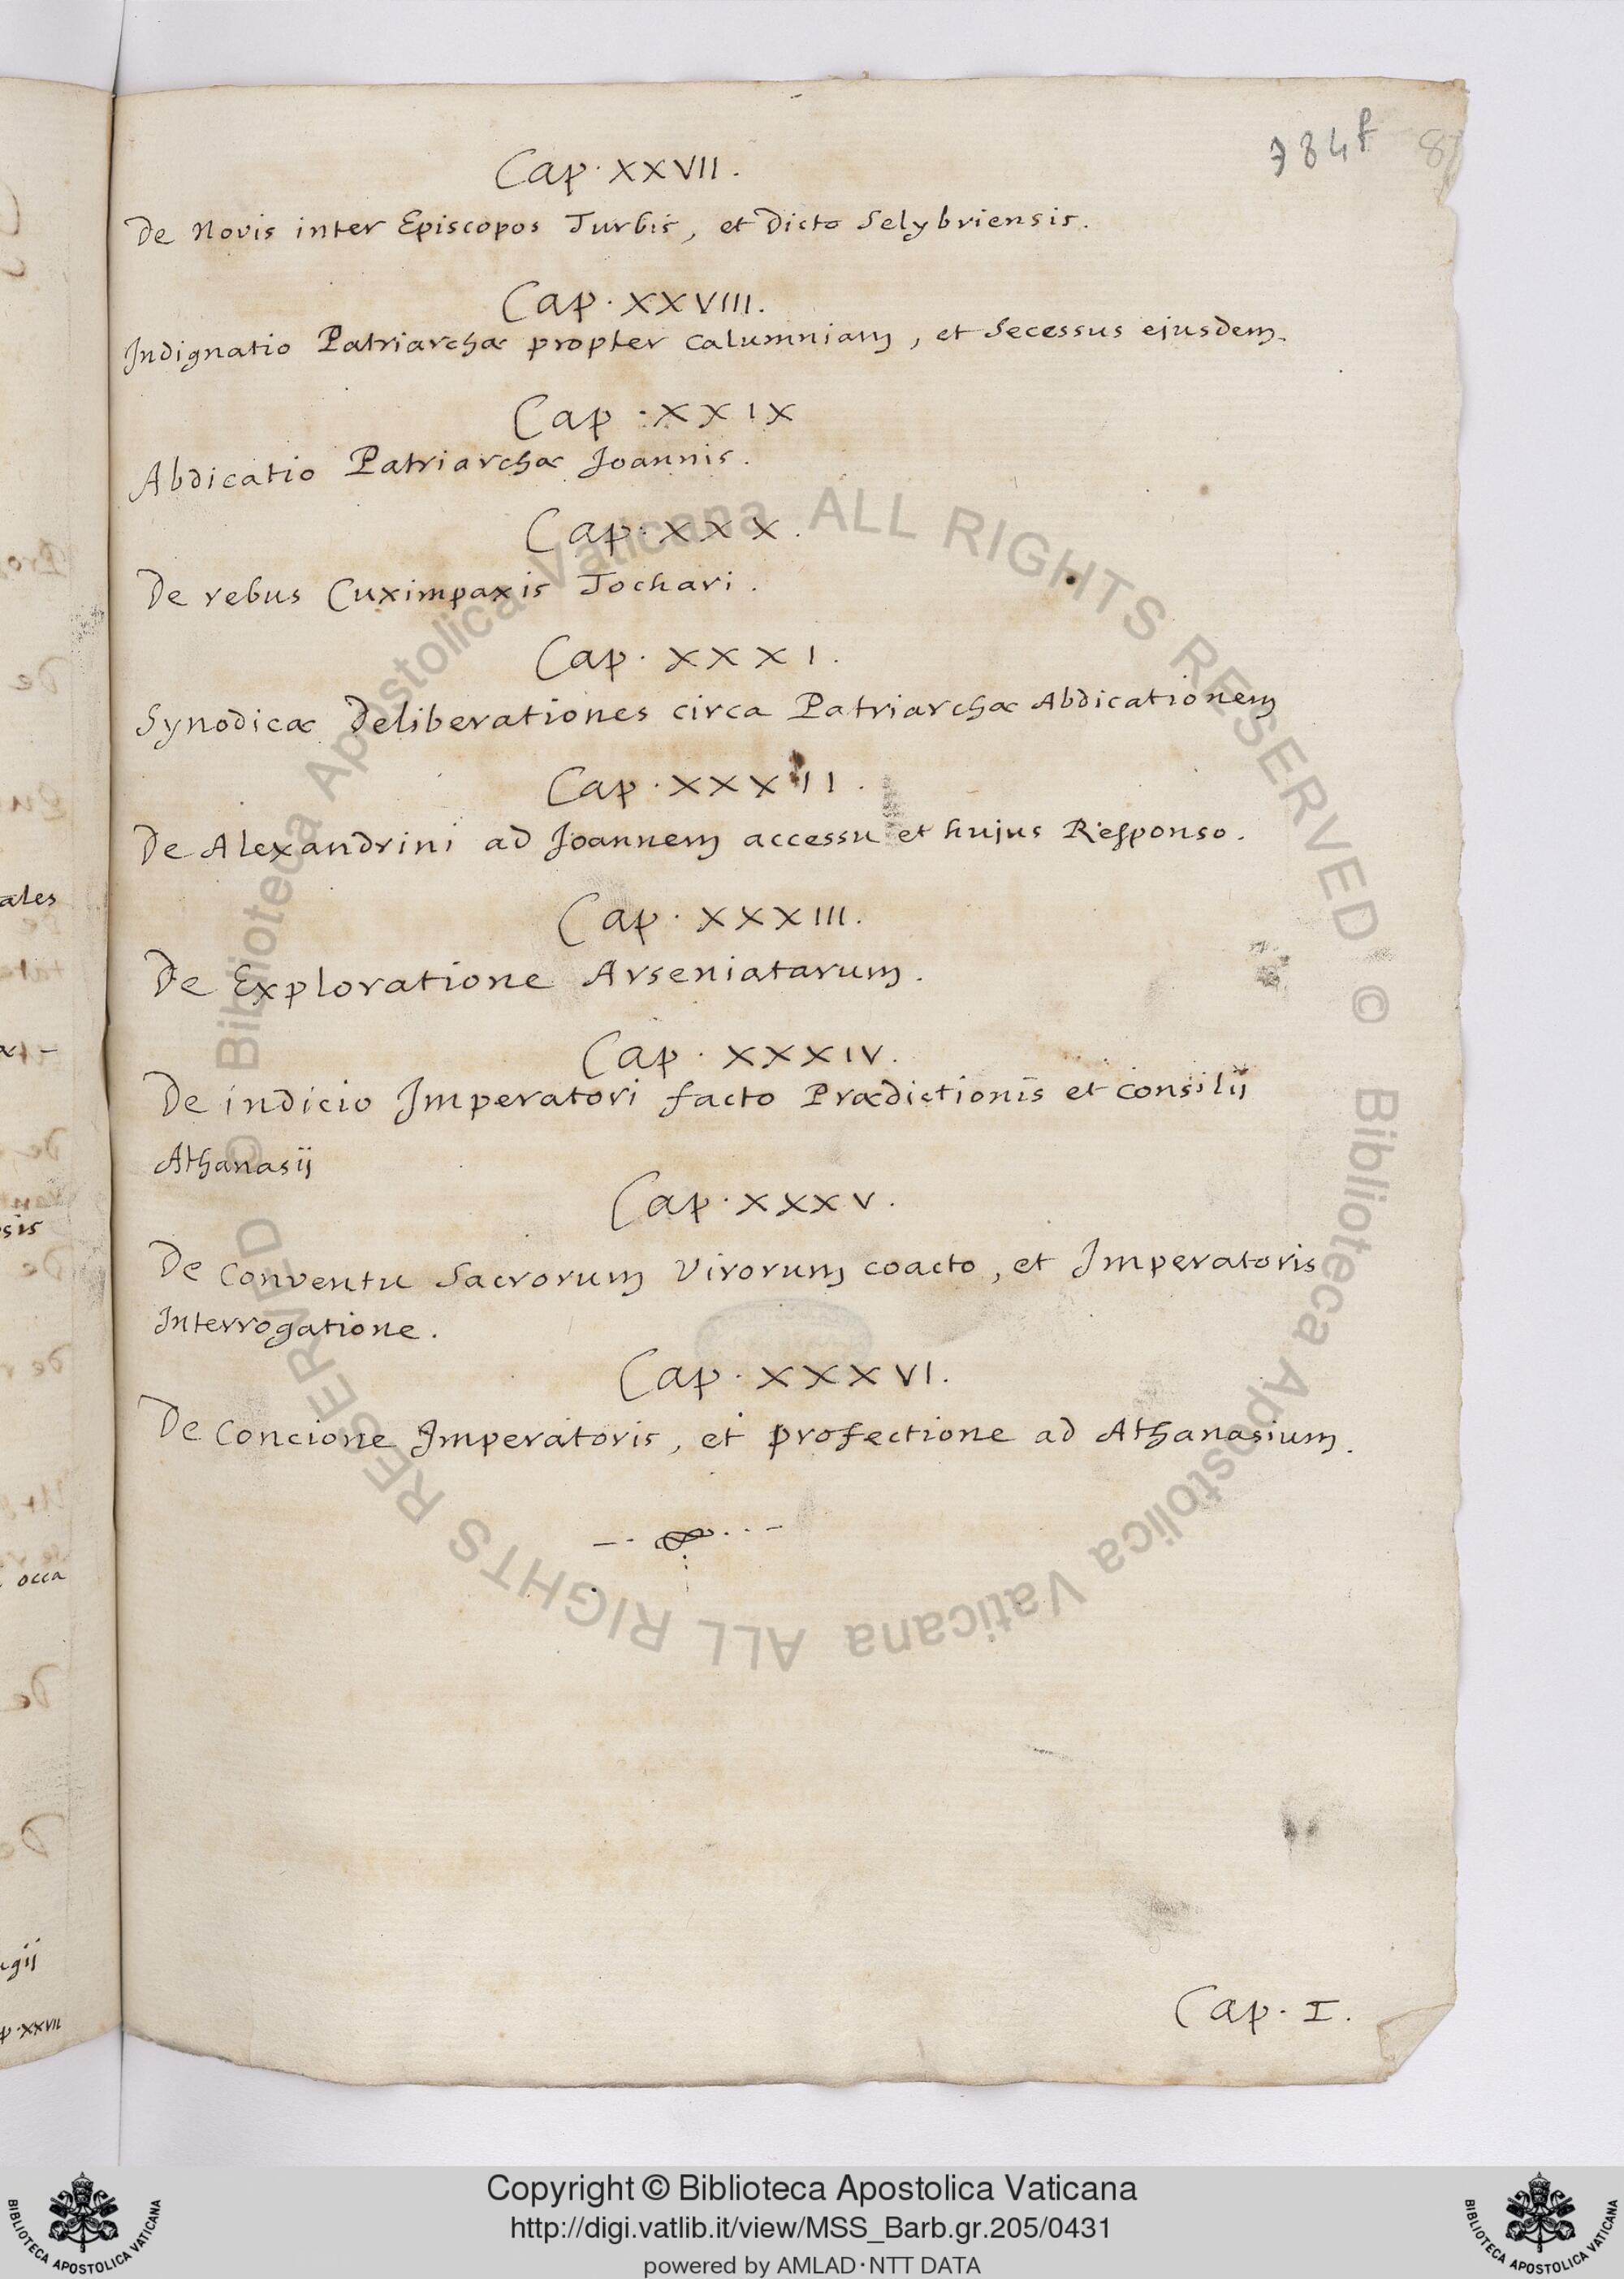 784f
Cap. XXVII.
De Novis inter Episcopos Turbis, et Dicto Selybriensis.
Cap. XXVIII.
Indignatio Patriarchæ propter calumniam, et Secessus ejusdem.
Cap. XXIX
Abdicatio Patriarchæ Joannis.
Cap. XXX.
De rebus Cuximpaxis Tochari.
Cap. XXXI.
Synodicæ Deliberationes circa Patriarchæ Abdicationem
Cap. XXXII.
De Alexandrini ad Joannem accessu et hujus Responso.
Cap. XXXIII.
De Exploratione Arseniatarum.
Cap. XXXIV.
De indicio Imperatori facto Prædictionis et consilij
Athanasij
Cap. XXXV.
De Conventu Sacrorum Virorum coacto, et Imperatoris
Interrogatione.
Cap. XXXVI.
De Concione Imperatoris, et profectione ad Athanasium.
Cap. I.
ales
sis
occa
p. XXVII
© Biblioteca Apostolica Vaticana ALL RIGHTS RESERVED © Biblioteca Apostolica Vaticana ALL RIGHTS RESERVED
Copyright © Biblioteca Apostolica Vaticana
http://digi.vatlib.it/view/MSS_Barb.gr.205/0431
powered by AMLAD·NTT DATA
BIBLIOTECA APOSTOLICA VATICANA
BIBLIOTECA APOSTOLICA VATICANA